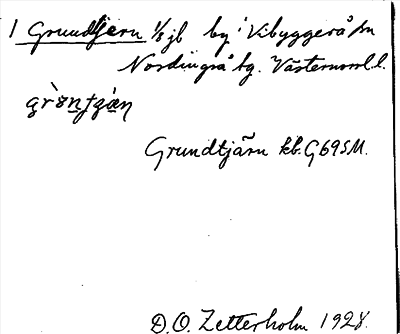 1 Grundtjern 1/8 jb by i Vibyggerå sn
Nordingrå tg. Västernorrl. l.
Grundtjärn kb. G69SM.
D.O. Zetterholm 1928.